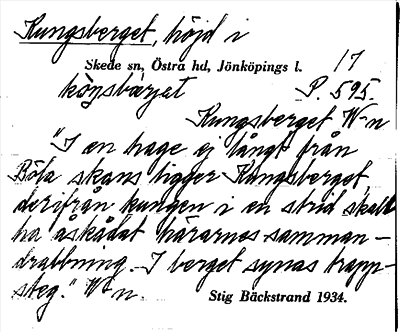 Kungsberget, höjd i
Skede sn, Östra hd, Jönköpings l. 17
kôɲsbærjet P. 595
Kungsberget W-n
"I en hage ej långt från
Böla skans ligger Kungsberget
derifrån kungen i en strid skall
ha åskådat härarnes samman-
drabbning. I berget synas trapp-
steg." W-n.
Stig Bäckstrand 1934.